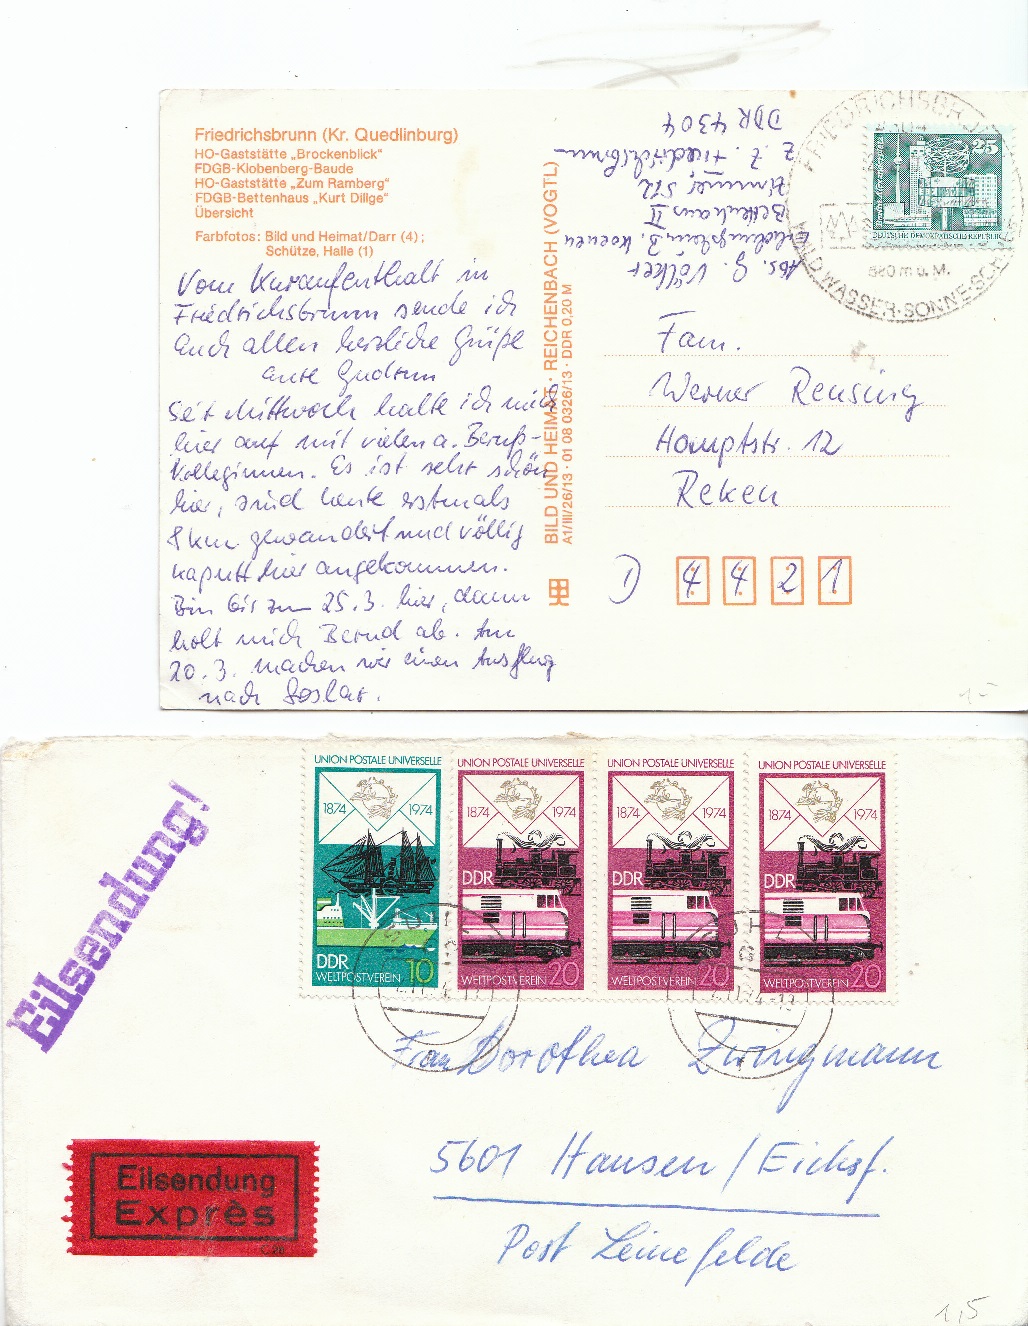 Friedrichsbrunn (Kr. Quedlinburg)
HO-Gaststätte „Brockenblick“
FDGB-Klobenberg-Baude
HO-Gaststätte „Zum Ramberg“
FDGB-Bettenhaus „Kurt Dillge“
Übersicht
Farbfotos: Bild und Heimat/Darr (4);
Schütze, Halle (1)
Vom Kuraufenthalt in
Friedrichsbrunn sende ich
Euch allen herzliche Grüße
eure Gudrun
Seit Mittwoch halte ich mich
hier auf mit vielen a. Berufs-
kolleginnen. Es ist sehr schön
hier, sind heute erstmals
8 km gewandert und völlig
kaputt hier angekommen.
Bin bis zum 25.3. hier, dann
holt mich Bernd ab. Am
20.3. machen wir einen Ausflug
nach Goslar.
BILD UND HEIMAT · REICHENBACH (VOGTL)
A1/III/26/13 · 01 08 0326/13 · DDR 0,20 M
Abs. G. Völker
Bettenhaus II
Zimmer 512
z. Z. Friedrichsbrunn
DDR 4304
25
DEUTSCHE DEMOKRATISCHE REPUBLIK
580 m ü. M.
WALD·WASSER·SONNE
Fam.
Werner Rensing
Hauptstr. 12
Reken
D 4421
1-
Eilsendung!
UNION POSTALE UNIVERSELLE
1874 1974
DDR
WELTPOSTVEREIN 10
UNION POSTALE UNIVERSELLE
1874 1974
DDR
WELTPOSTVEREIN 20
UNION POSTALE UNIVERSELLE
1874 1974
DDR
WELTPOSTVEREIN 20
UNION POSTALE UNIVERSELLE
1874 1974
DDR
WELTPOSTVEREIN 20
Frau Dorothea Zwingmann
5601 Hausen/Eichsf.
Post Leinefelde
Eilsendung
Exprès
1,5